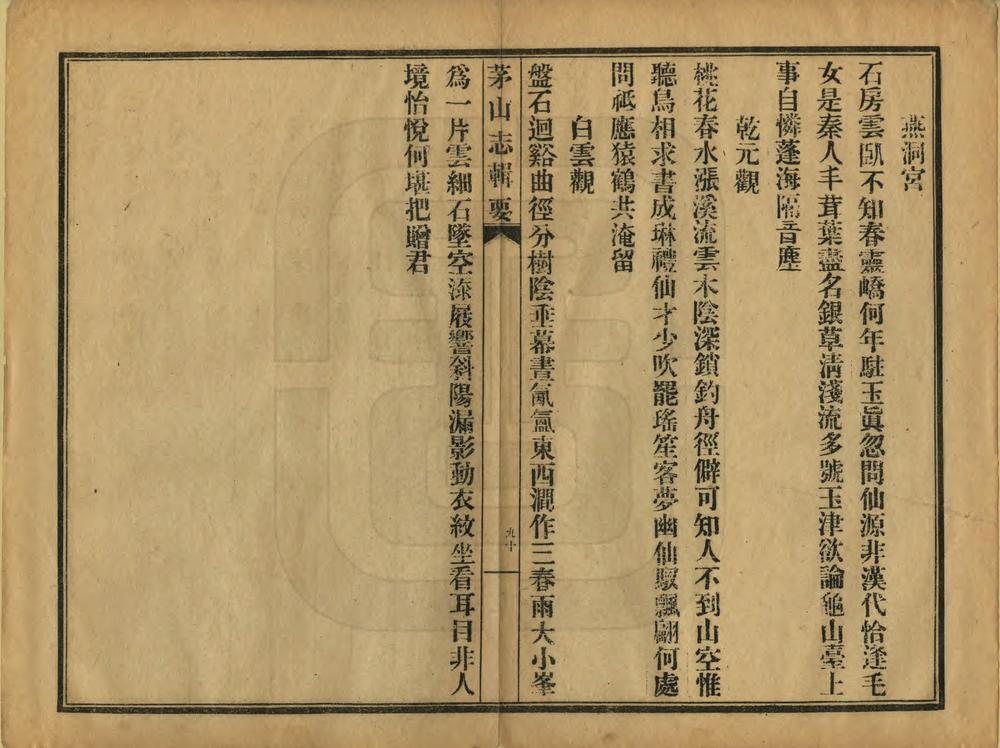 燕洞宮
石房雲臥不知春靈嶠何年駐玉眞忽問仙源非漢代恰逢毛
女是秦人丰茸葉盡名銀草淸淺流多號玉津欲論龜山臺上
事自憐蓬海隔音塵
乾元觀
桃花春水漲溪流雲木陰深鎖釣舟徑僻可知人不到山空惟
聽鳥相求書成琳禮仙才少吹罷瑤笙客夢幽仙馭飄翩何處
問祗應猿鶴共淹留
白雲觀
盤石迴谿曲徑分樹陰垂幕晝氤氳東西澗作三春雨大小峯
茅山志輯要
九十
爲一片雲細石墜空滦屐響斜陽漏影動衣紋坐看耳目非人
境怡悅何堪把贈君